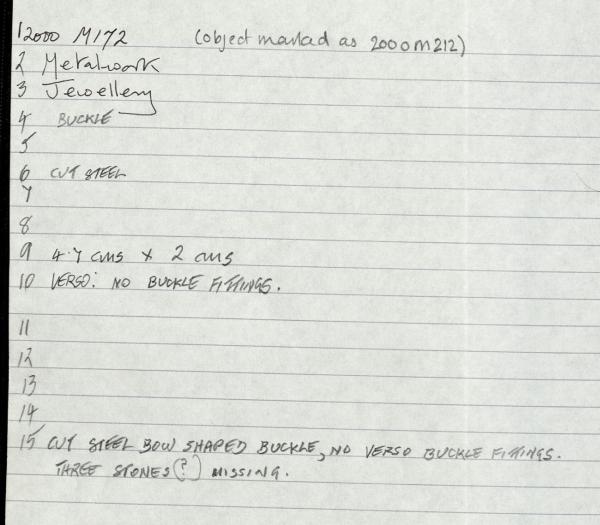 1 2000 M172 (object marked as 2000M212)
2 Metalwork
3 Jewellery
4 BUCKLE
5
6 CUT STEEL
7
8
9 4.7 cms x 2 cms
10 VERSO: NO BUCKLE FITTINGS.
11
12
13
14
15 CUT STEEL BOW SHAPED BUCKLE, NO VERSO BUCKLE FITTINGS.
THREE STONES (?) MISSING.